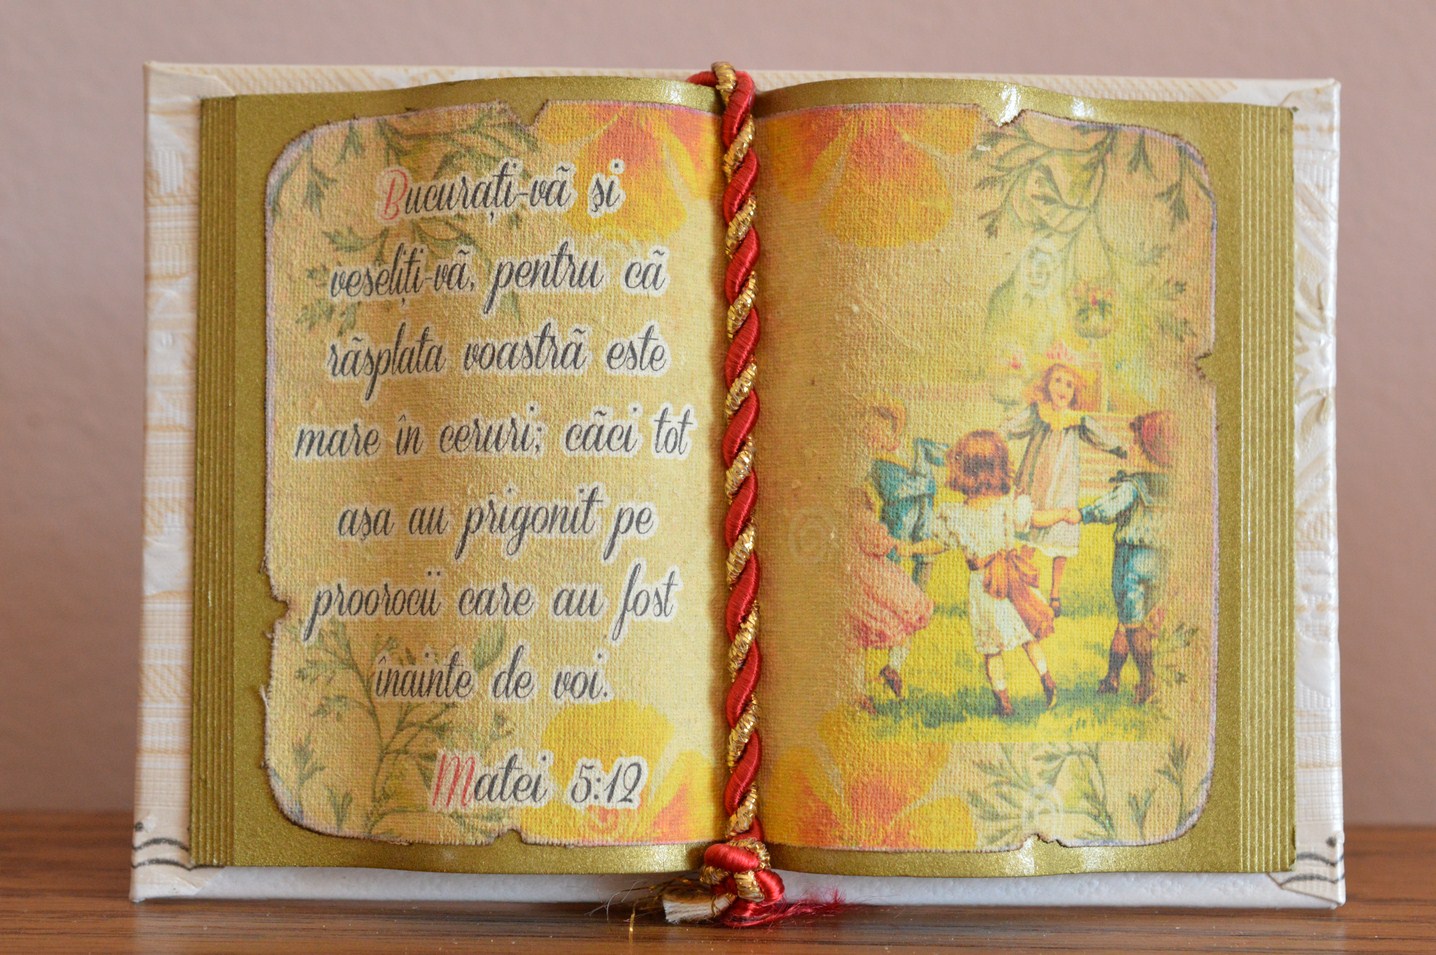 Bucurați-vã și
veseliți-vã, pentru cã
rãsplata voastrã este
mare în ceruri; cãci tot
așa au prigonit pe
proorocii care au fost
înainte de voi.
Matei 5:12